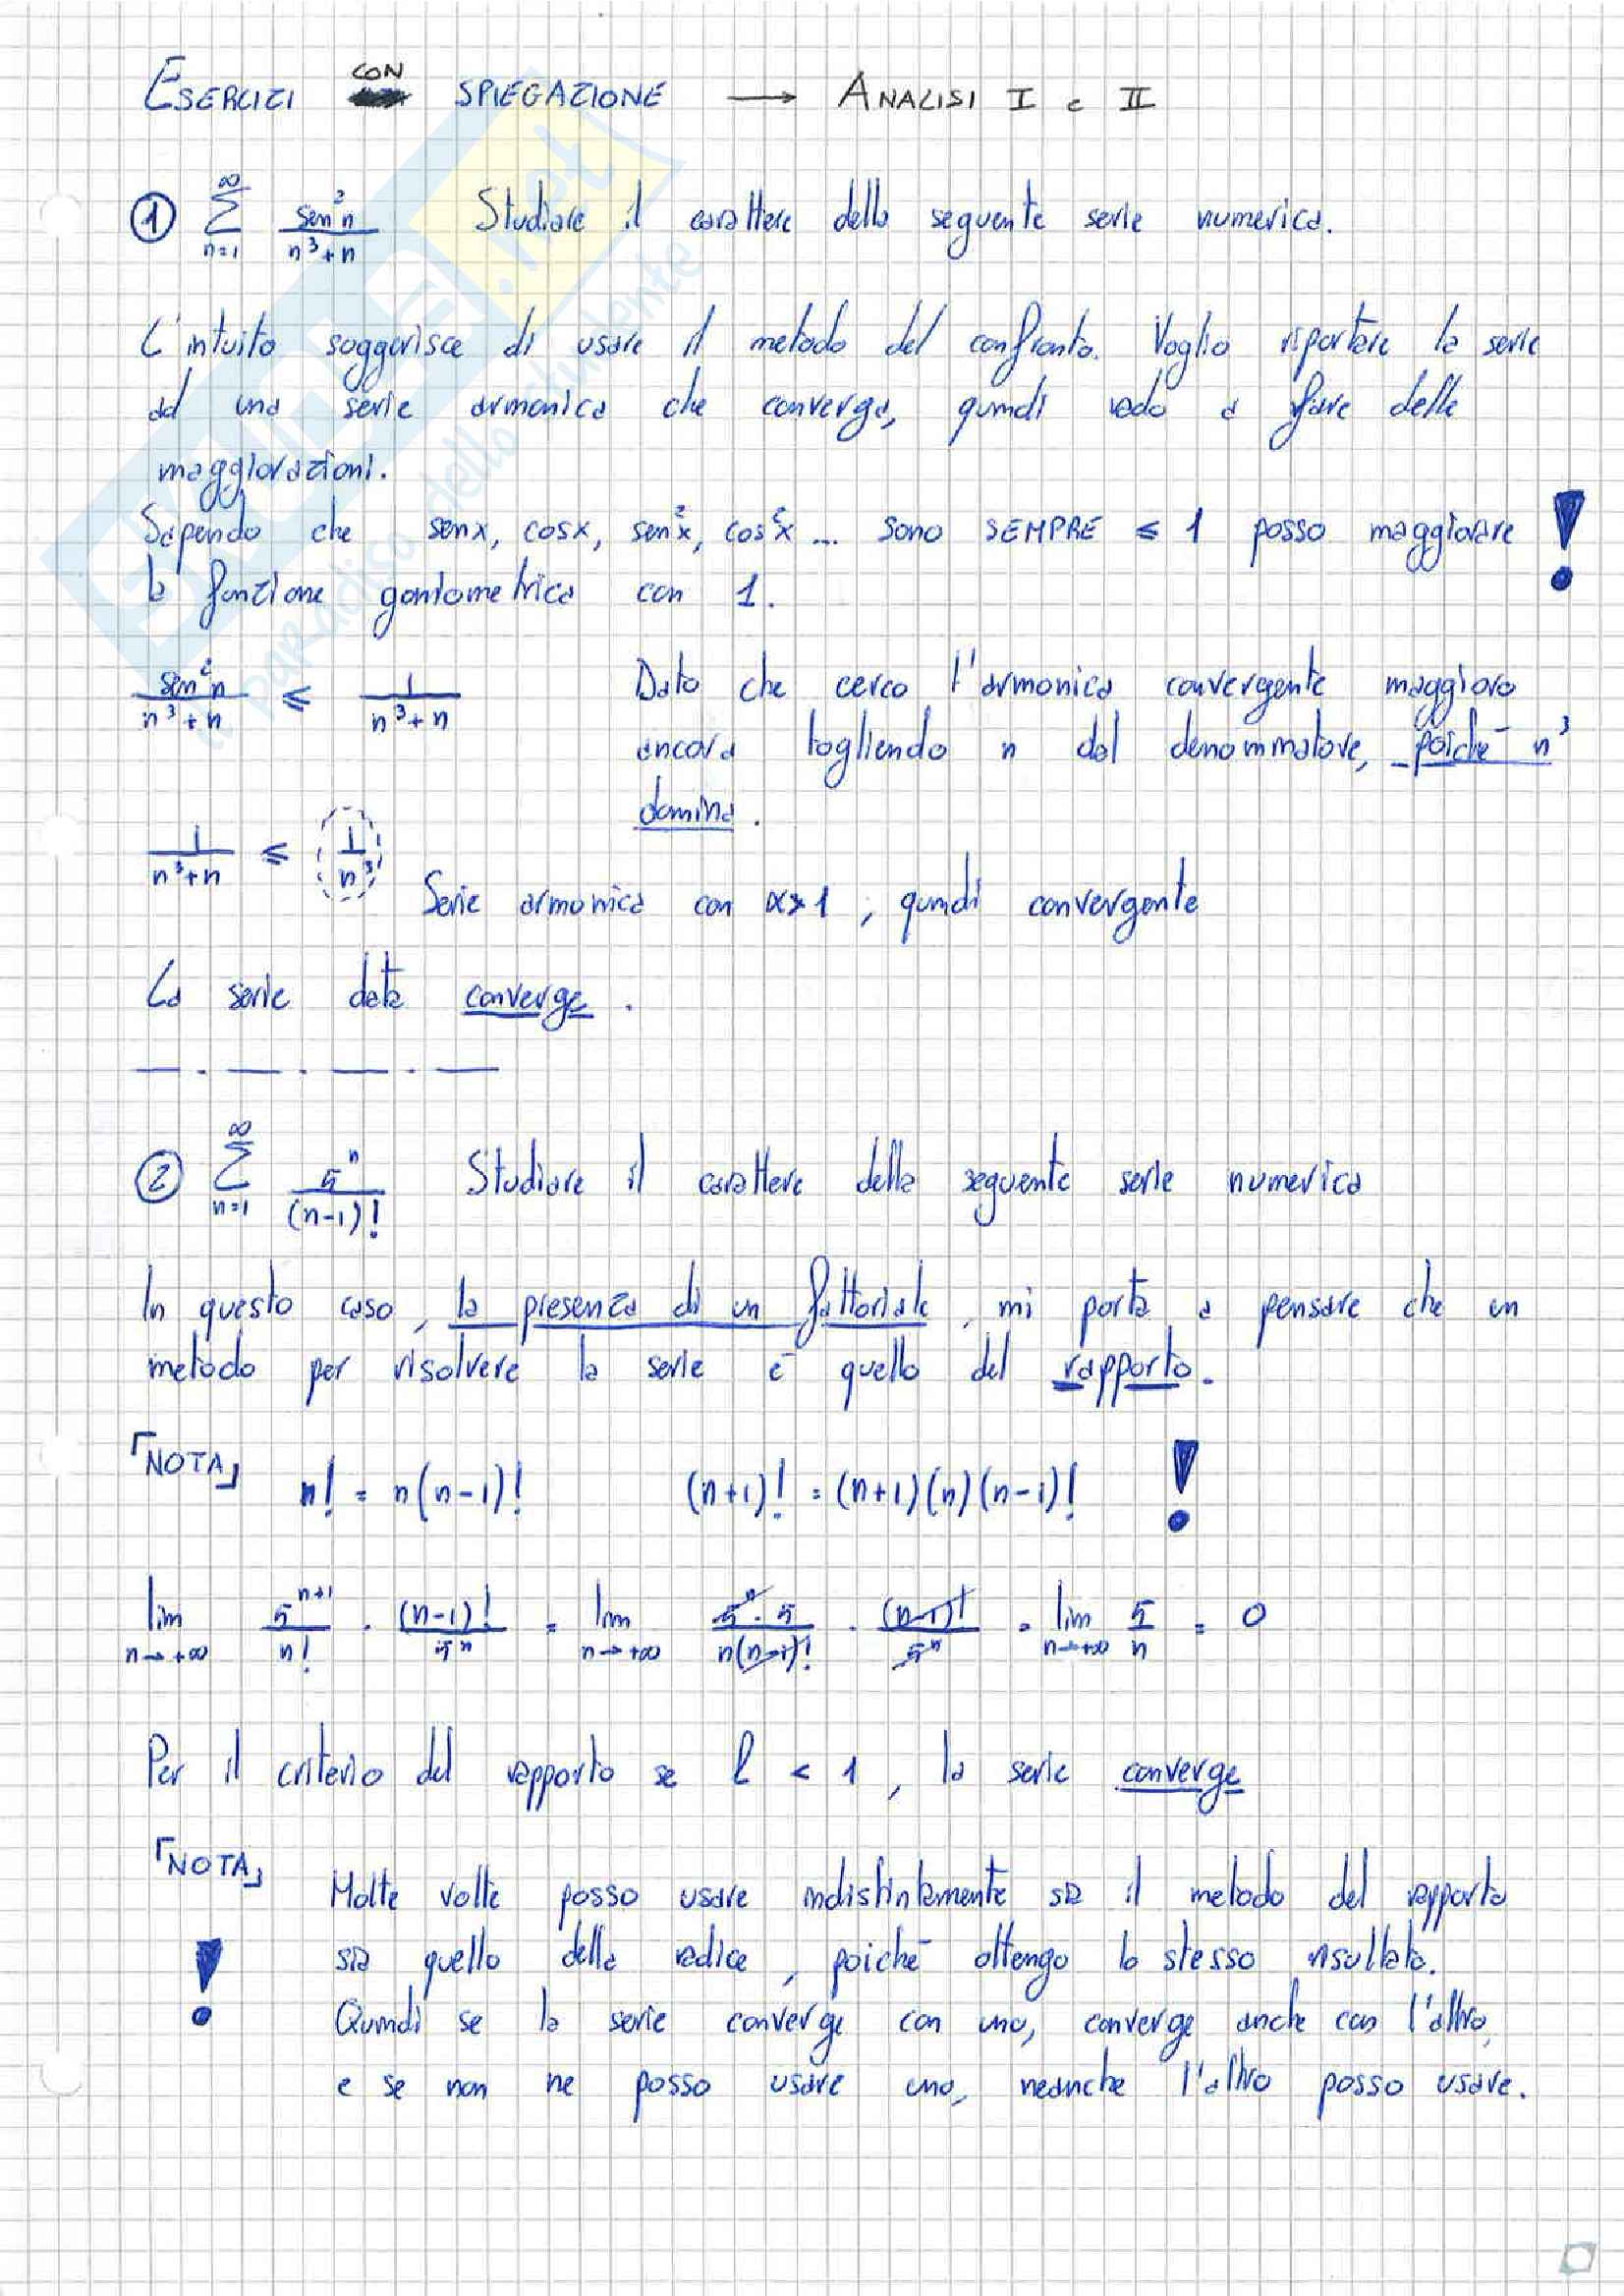 ESERCIZI CON SPIEGAZIONE → ANALISI I e II
① ∞ Σ n=1 sen²n / n³+n Studiare il carattere della seguente serie numerica.
L'intuito suggerisce di usare il metodo del confronto. Voglio riportare la serie
ad una serie armonica che converga, quindi vado a fare delle
maggiorazioni.
Sapendo che senx, cosx, sen²x, cos²x ... sono SEMPRE ≤ 1 posso maggiorare !
la funzione goniometrica con 1.
sen²n / n³+n ≤ 1 / n³+n Dato che cerco l'armonica convergente maggioro
ancora togliendo n dal denominatore, poiché n³
domina.
1 / n³+n ≤ 1 / n³ Serie armonica con α>1, quindi convergente
La serie data converge.
— . — . — . —
② ∞ Σ n=1 5ⁿ / (n-1)! Studiare il carattere della seguente serie numerica
In questo caso, la presenza di un fattoriale, mi porta a pensare che un
metodo per risolvere la serie è quello del rapporto.
「NOTA」 n! = n(n-1)! (n+1)! = (n+1)(n)(n-1)! !
lim n→+∞ 5ⁿ⁺¹ / n! · (n-1)! / 5ⁿ = lim n→+∞ 5ⁿ·5 / n(n-1)! · (n-1)! / 5ⁿ = lim n→+∞ 5 / n = 0
Per il criterio del rapporto se l < 1, la serie converge
「NOTA」 Molte volte posso usare indistintamente sia il metodo del rapporto
! sia quello della radice, poiché ottengo lo stesso risultato.
Quindi se la serie converge con uno, converge anche con l'altro,
e se non ne posso usare uno, neanche l'altro posso usare.
SKUOLA.net
il paradiso dello studente